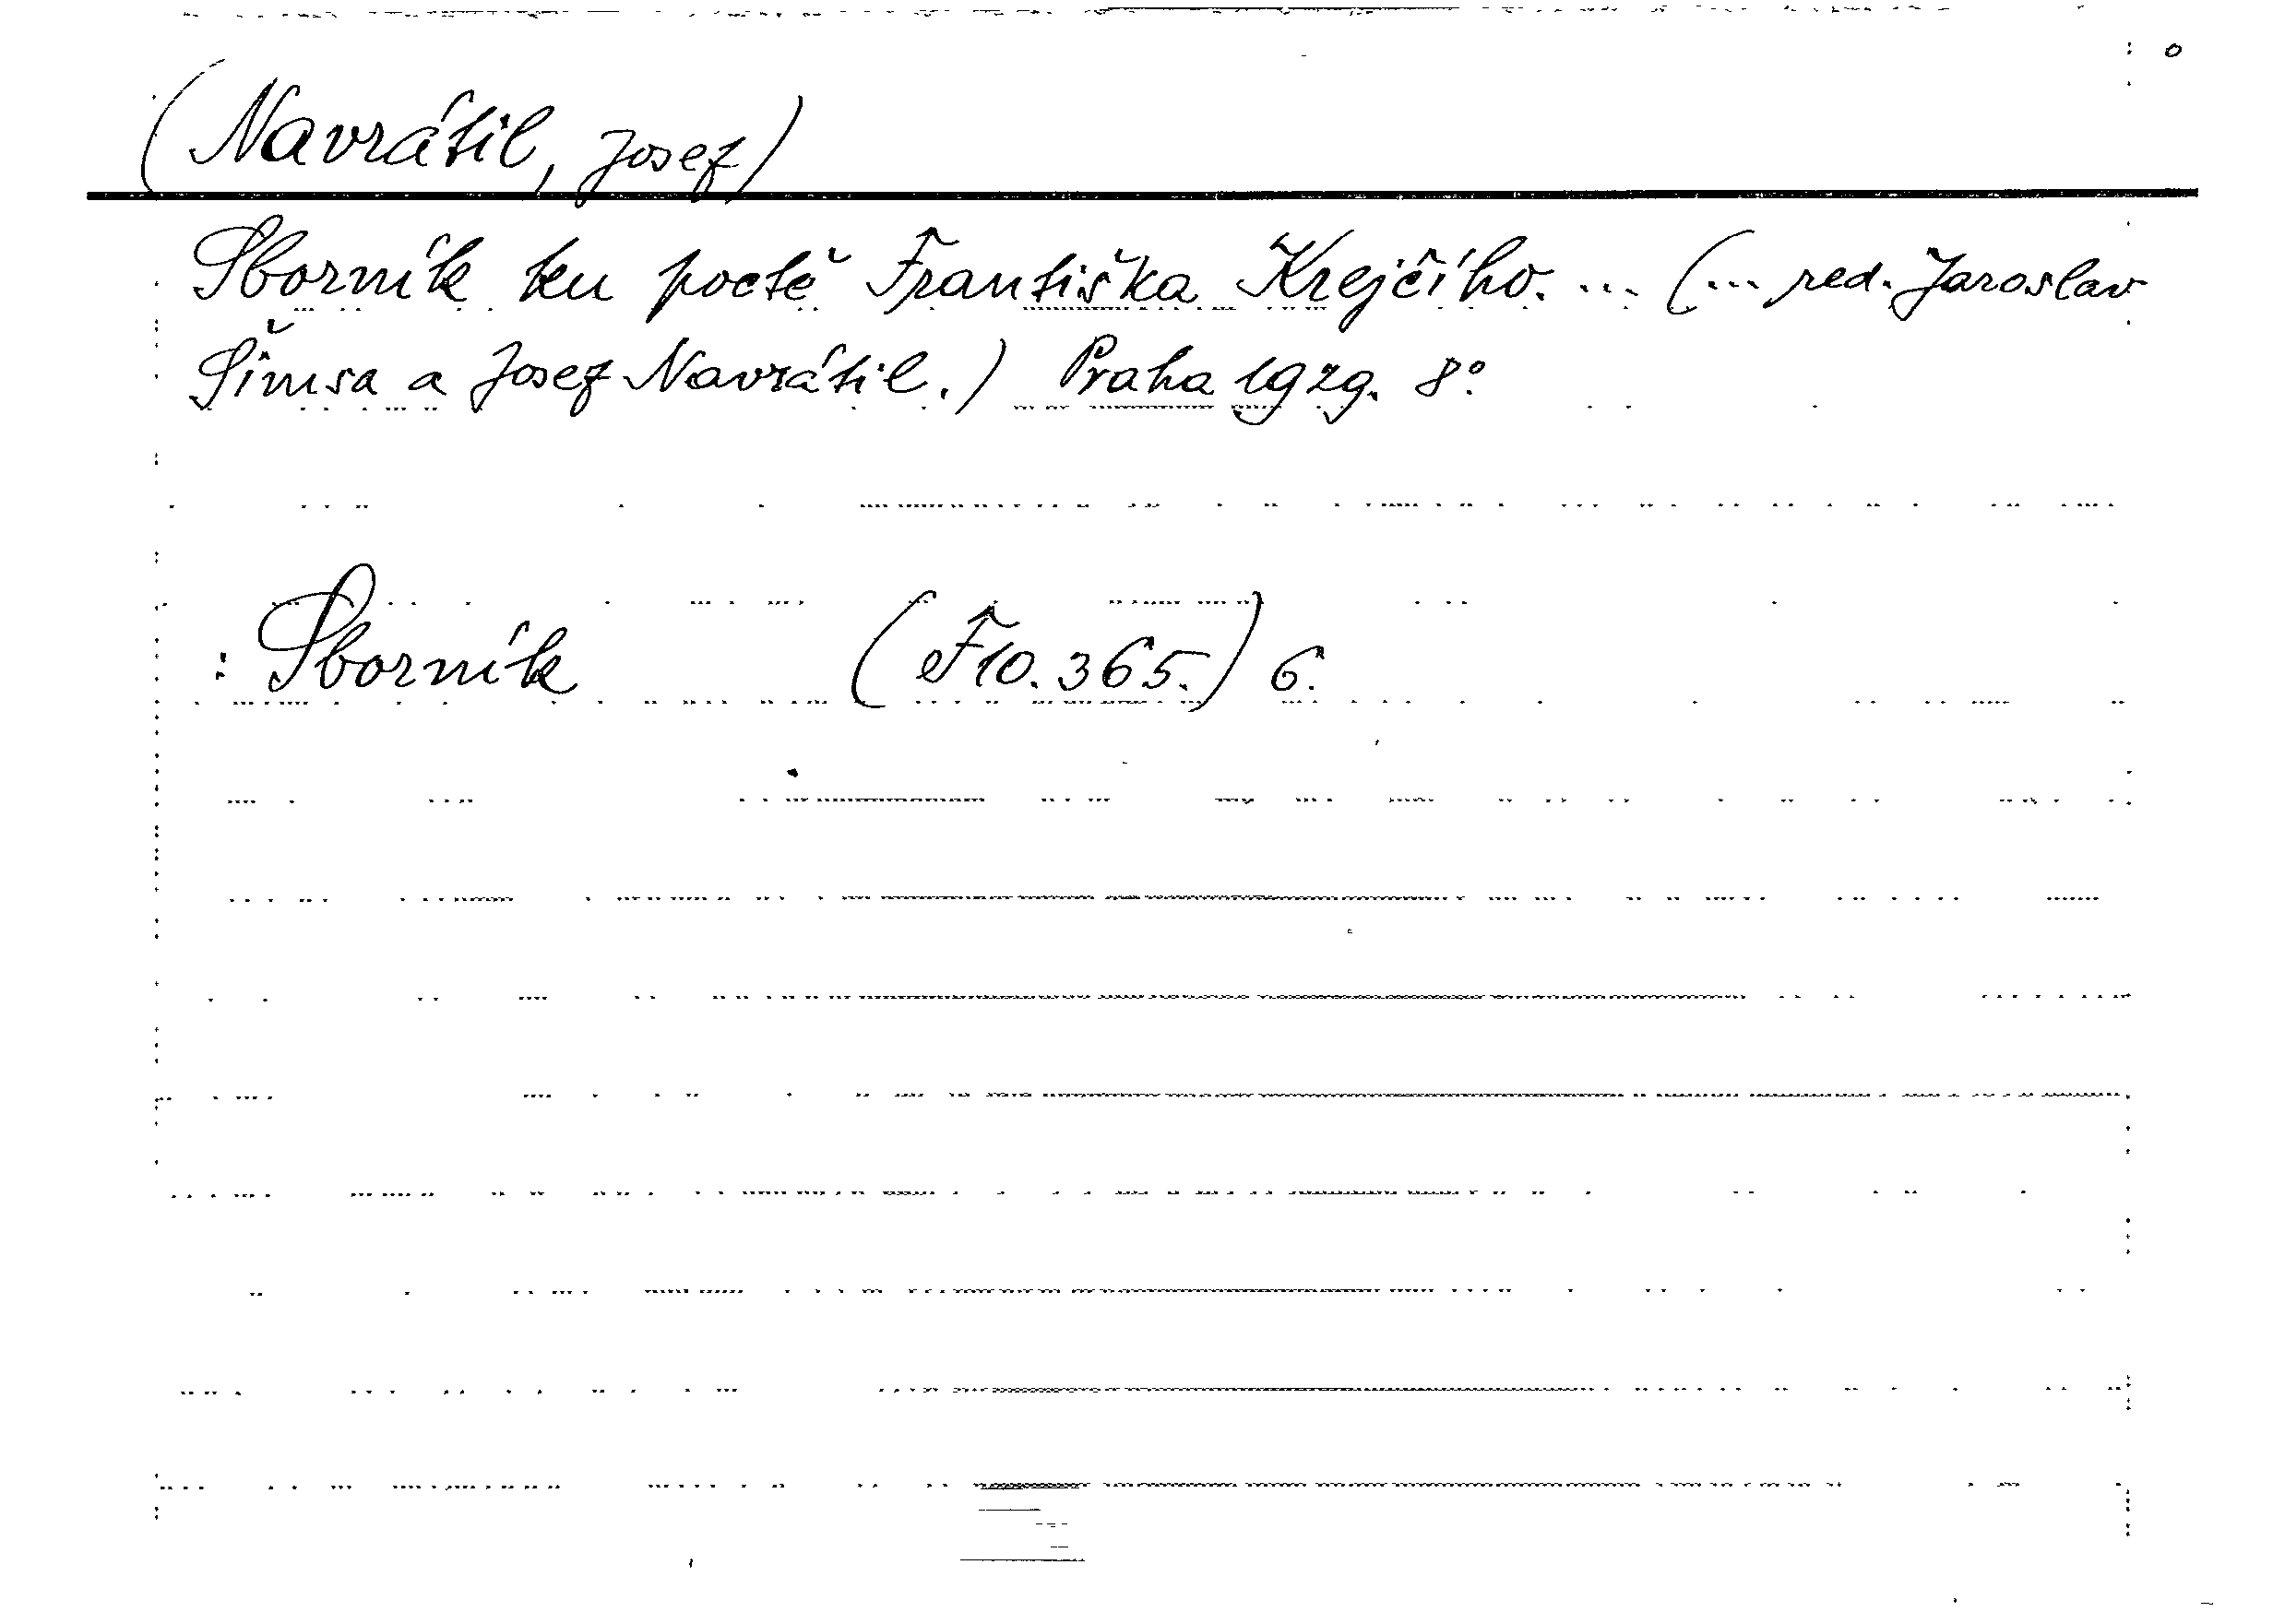 (Navrátil, Josef)
Sborník ku poctě Františka Krejčího. ... (... red. Jaroslav
Šimsa a Josef Navrátil.) Praha 1929. 8°
: Sborník (F10.365.) 6.